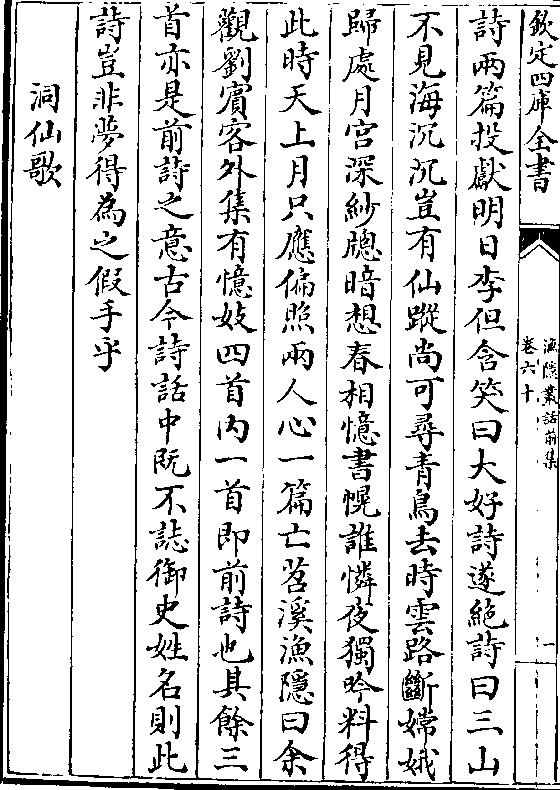 欽定四庫全書
漁隱叢話前集
卷六十
一
詩兩篇投獻明日李但含笑曰大好詩遂絶詩曰三山
不見海沉沉豈有仙蹤尚可尋青鳥去時雲路斷嫦娥
歸處月宫深紗牕暗想春相憶書幌誰憐夜獨吟料得
此時天上月只應偏照兩人心一篇亡苕溪漁隱曰余
觀劉賓客外集有憶妓四首内一首即前詩也其餘三
首亦是前詩之意古今詩話中既不誌御史姓名則此
詩豈非夢得為之假手乎
洞仙歌